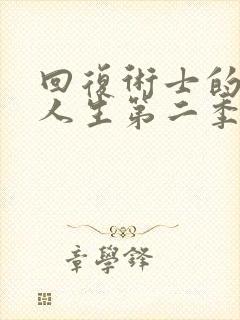 回復術士的
人生第二季
章學鋒